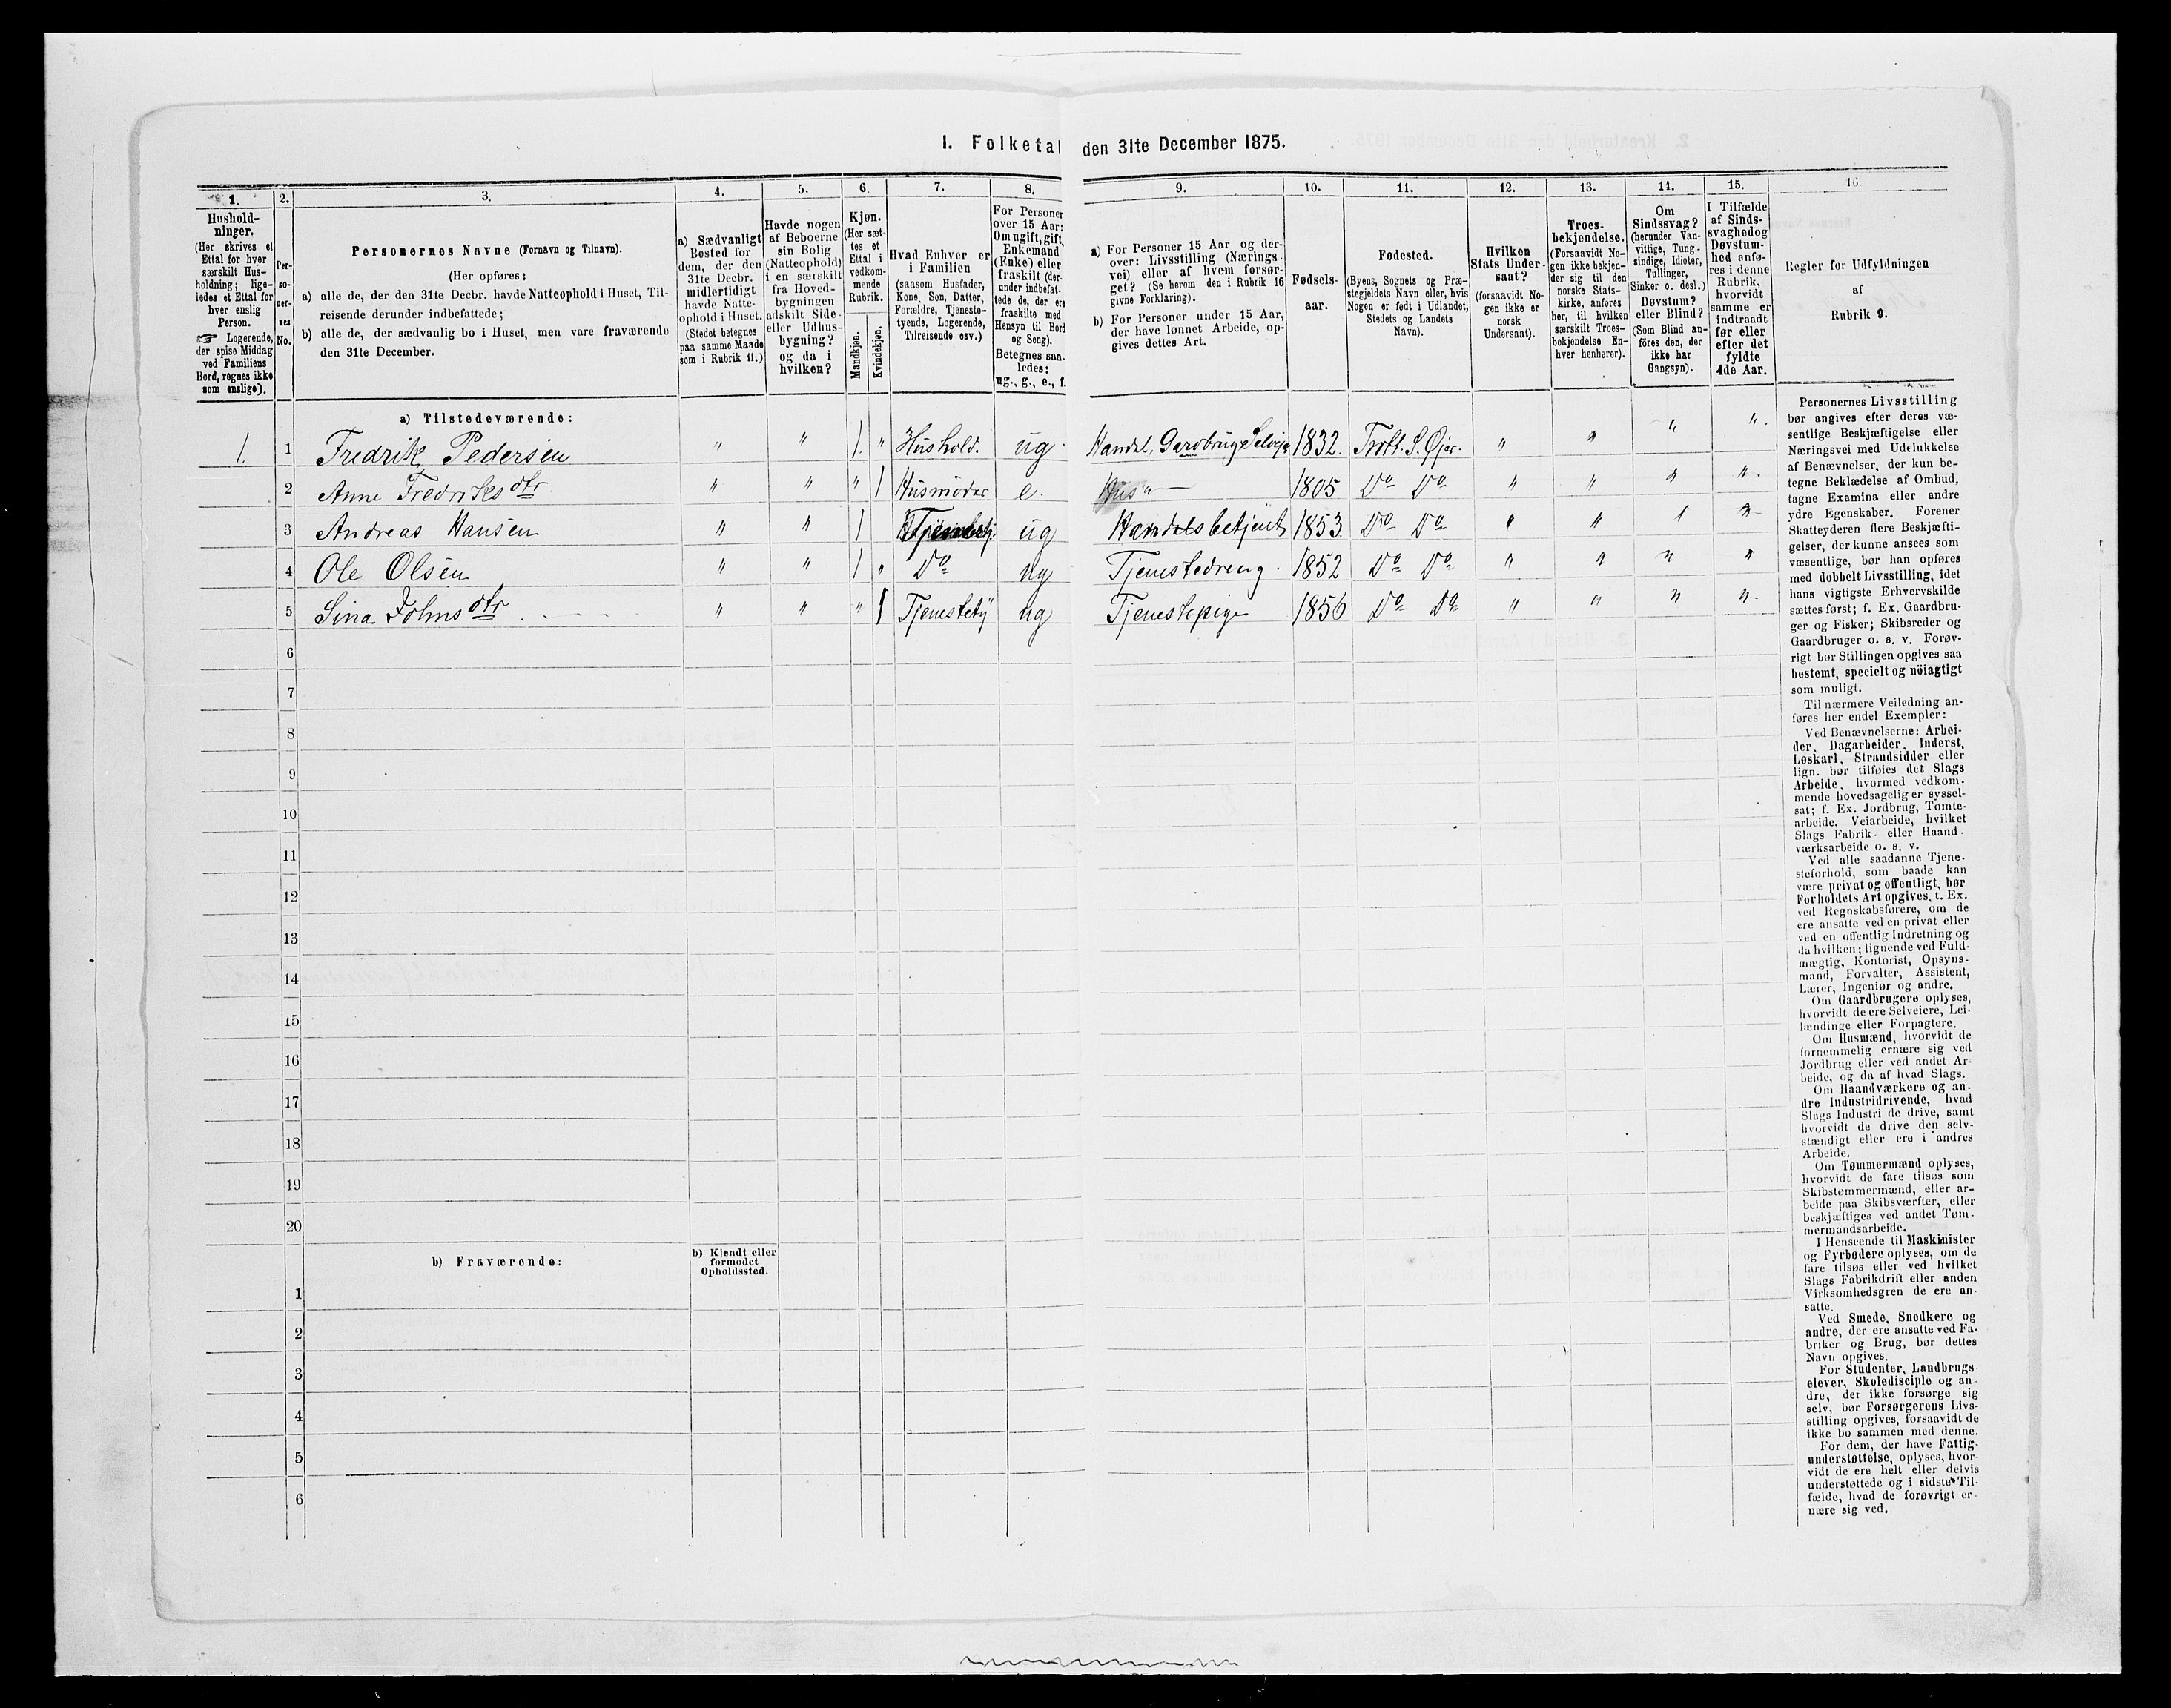 I. Folketal den 31te December 1875.
1.
Hushold-
ninger.
(Her skrives et
Ettal for hver
særskilt Hus-
holdning; lige-
ledes et Ettal for
hver enslig
Person.
☞ Logerende,
der spise Middag
ved Familiens
Bord, regnes ikke
som enslige).
2.
Per-
so-
ner-
nes
No.
3.
Personernes Navne (Fornavn og Tilnavn).
(Her opføres:
a) alle de, der den 31te Decbr. havde Natteophold i Huset, Til-
reisende derunder indbefattede;
b) alle de, der sædvanlig bo i Huset, men vare fraværende
den 31te December.
4.
a) Sædvanligt
Bosted for
dem, der den
31te Decbr.
midlertidigt
havde Natte-
ophold i Huset.
(Stedet betegnes
paa samme Maade
som i Rubrik 11.)
5.
Havde nogen
af Beboerne
sin Bolig
(Natteophold)
i en særskilt
fra Hoved-
bygningen
adskilt Side-
eller Udhus-
bygning?
og da i
hvilken?
6.
Kjøn.
(Her sæt-
tes et
Ettal i
vedkom-
mende
Rubrik.
Mandkjøn.
Kvindekjøn.
7.
Hvad Enhver er
i Familien
(saasom Husfader,
Kone, Søn, Datter,
Forældre, Tjeneste-
tyende, Logerende,
Tilreisende osv.)
8.
For Personer
over 15 Aar:
Om ugift, gift,
Enkemand
(Enke) eller
fraskilt (der-
under indbefat-
tede de, der ere
fraskilte med
Hensyn til Bord
og Seng).
Betegnes saa-
ledes:
ug., g., e., f.
9.
a) For Personer 15 Aar og der-
over: Livsstilling (Nærings-
vei) eller af hvem forsør-
get? (Se herom den i Rubrik 16
givne Forklaring).
b) For Personer under 15 Aar,
der have lønnet Arbeide, op-
gives dettes Art.
10.
Fødsels-
aar.
11.
Fødested.
(Byens, Sognets og Præ-
stegjeldets Navn eller, hvis
Nogen er født i Udlandet,
Stedets og Landets
Navn).
12.
Hvilken
Stats Under-
saat?
(forsaavidt No-
gen ikke er
norsk
Undersaat).
13.
Troes-
bekjendelse.
(Forsaavidt No-
gen ikke bekjen-
der sig til den
norske Stats-
kirke, anføres
her, til hvilken
særskilt Troes-
bekjendelse En-
hver henhører).
14.
Om
Sindssvag?
(herunder Van-
vittige, Tung-
sindige, Idioter,
Tullinger,
Sinker o. desl.)
Døvstum?
eller Blind?
(Som Blind an-
føres den, der
ikke har
Gangsyn).
15.
I Tilfælde
af Sinds-
svaghed og
Døvstum-
hed anfø-
res i denne
Rubrik,
hvorvidt
samme er
indtraadt
før eller
efter det
fyldte
4de Aar.
16
Regler for Udfyldningen
af
Rubrik 9.
a) Tilstedeværende:
1. 1 Fredrik Pedersen " " 1. " Hushold. ug. Handel, Gardbrug Selvejr 1832. Trøtt. S. Øjer. " " " ".
2 Anne Fredriksdtr " " " 1 Husmoder e. Hus " 1805 Do Do " " " ".
3 Andreas Hansen " " 1 ug Handelsbetjent 1853. Do Do " " " "
4 Ole Olsen " " 1 " Do ug Tjenestedreng. 1852 Do Do " " " "
5 Sina Johnsdtr " " " 1 Tjenestetÿ ug Tjenestepige 1856 Do Do " " " ".
6
7
8
9
10
11
12
13
14
15
16
17
18
19
20
b) Fraværende:
b) Kjendt eller
formodet
Opholdssted.
1
2
3
4
5
6
Personernes Livsstilling
bør angives efter deres væ-
sentlige Beskjæftigelse eller
Næringsvei med Udelukkelse
af Benævnelser, der kun be-
tegne Beklædelse af Ombud,
tagne Examina eller andre
ydre Egenskaber. Forener
Skatteyderen flere Beskjæfti-
gelser, der kunne ansees som
væsentlige, bør han opføres
med dobbelt Livsstilling, idet
hans vigtigste Erhvervskilde
sættes først; f. Ex. Gaardbru-
ger og Fisker; Skibsreder og
Gaardbruger o. s. v. Forøv-
rigt bør Stillingen opgives saa
bestemt, specielt og nöiagtigt
som muligt.
Til nærmere Veiledning an-
føres her endel Exempler:
Ved Benævnelserne: Arbei-
der, Dagarbeider, Inderst,
Løskarl, Strandsidder eller
lign. bør tilføies det Slags
Arbeide, hvormed vedkom-
mende hovedsagelig er syssel-
sat; f. Ex. Jordbrug, Tomte-
arbeide, Veiarbeide, hvilket
Slags Fabrik- eller Haand-
værksarbeide o. s. v.
Ved alle saadanne Tjene-
steforhold, som baade kan
være privat og offentligt, bør
Forholdets Art opgives, f. Ex.
ved Regnskabsførere, om de
ere ansatte ved en privat eller
ved en offentlig Indretning og
da hvilken; lignende ved Fuld-
mægtig, Kontorist, Opsyns-
mand, Forvalter, Assistent,
Lærer, Ingeniør og andre.
Om Gaardbrugere oplyses,
hvorvidt de ere Selveiere, Lei-
lændinge eller Forpagtere.
Om Husmænd, hvorvidt de
fornemmelig ernære sig ved
Jordbrug eller ved andet Ar-
beide, og da af hvad Slags.
Om Haandværkere og an-
dre Industridrivende, hvad
Slags Industri de drive, samt
hvorvidt de drive den selv-
stændigt eller ere i andres
Arbeide.
Om Tømmermænd oplyses,
hvorvidt de fare tilsøs som
Skibstømmermænd, eller ar-
beide paa Skibsværfter, eller
beskjæftiges ved andet Tøm-
mermandsarbeide.
I Henseende til Maskinister
og Fyrbødere oplyses, om de
fare tilsøs eller ved hvilket
Slags Fabrikdrift eller anden
Virksomhedsgren de ere an-
satte.
Ved Smede, Snedkere og
andre, der ere ansatte ved Fa-
briker og Brug, bør dettes
Navn opgives.
For Studenter, Landbrugs-
elever, Skoledisciple og an-
dre, der ikke forsørge sig
selv, bør Forsørgerens Livs-
stilling opgives, forsaavidt de
ikke bo sammen med denne.
For dem, der have Fattig-
understøttelse, oplyses, hvor-
vidt de ere helt eller delvis
understøttede og i sidste Til-
fælde, hvad de forøvrigt er-
nære sig ved.